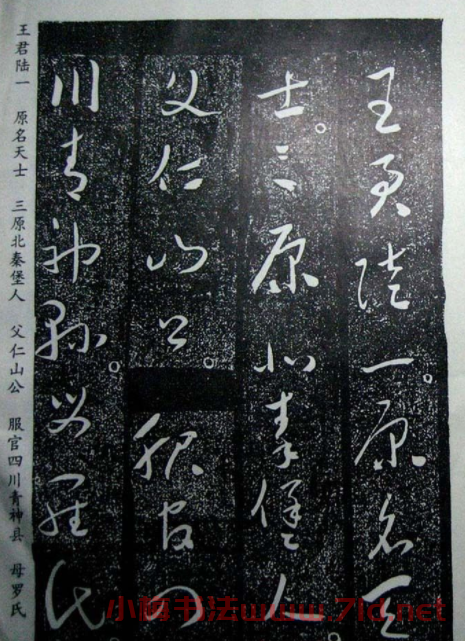 王君陆一。原名天
士。三原北秦堡人。
父仁山公。服官四
川青神县。母罗氏。
王君陆一 原名天士 三原北秦堡人 父仁山公 服官四川青神县 母罗氏
小鸭书法www.71d.net